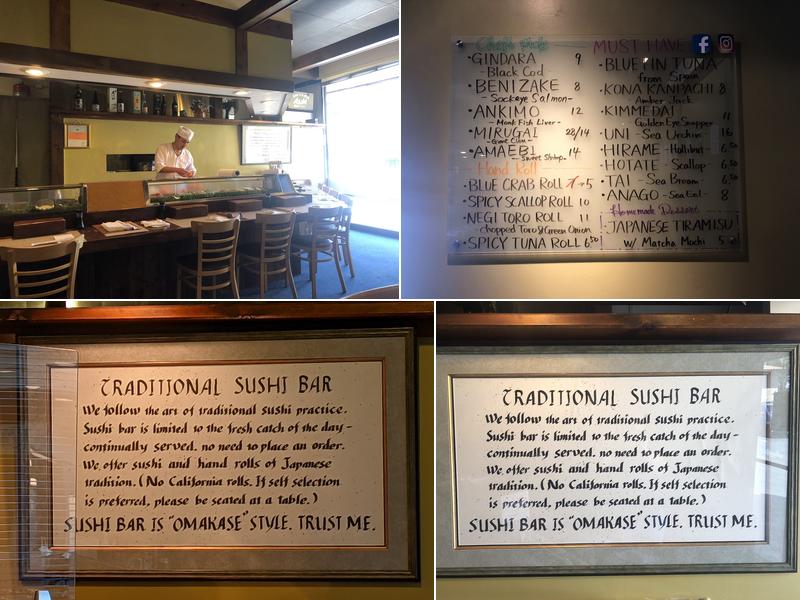 Chef's Pick
• GINDARA 9
- Black Cod -
• BENIZAKE 8
- Sockeye Salmon -
• ANKIMO 12
- Monk Fish Liver -
• MIRUGAI 28/14
- Giant Clam -
• AMAEBI 14
- Sweet Shrimp -
Hand Roll
BLUE CRAB ROLL 7.5
SPICY SCALLOP ROLL 10
NEGI TORO ROLL 11
- chopped Toro & Green Onion
• SPICY TUNA ROLL 6.50
MUST HAVE
• BLUE FIN TUNA
from Spain
• KONA KANPACHI 8
Amber Jack
• KIMMEDAI 11
Golden Eye Snapper
• UNI - Sea Urchin 16
• HIRAME - Halibut 6.50
• HOTATE - Scallop 6.50
• TAI - Sea Bream 6.50
• ANAGO - Sea Eel 8
Homemade Dessert
JAPANESE TIRAMISU
w/ Matcha Mochi 5
TRADITIONAL SUSHI BAR
We follow the art of traditional sushi practice.
Sushi bar is limited to the fresh catch of the day -
continually served, no need to place an order.
We offer sushi and hand rolls of Japanese
tradition. (No California rolls. If self selection
is preferred, please be seated at a table.)
SUSHI BAR IS "OMAKASE" STYLE. TRUST ME.
TRADITIONAL SUSHI BAR
We follow the art of traditional sushi practice.
Sushi bar is limited to the fresh catch of the day -
continually served, no need to place an order.
We offer sushi and hand rolls of Japanese
tradition. (No California rolls. If self selection
is preferred, please be seated at a table.)
SUSHI BAR IS "OMAKASE" STYLE. TRUST ME.